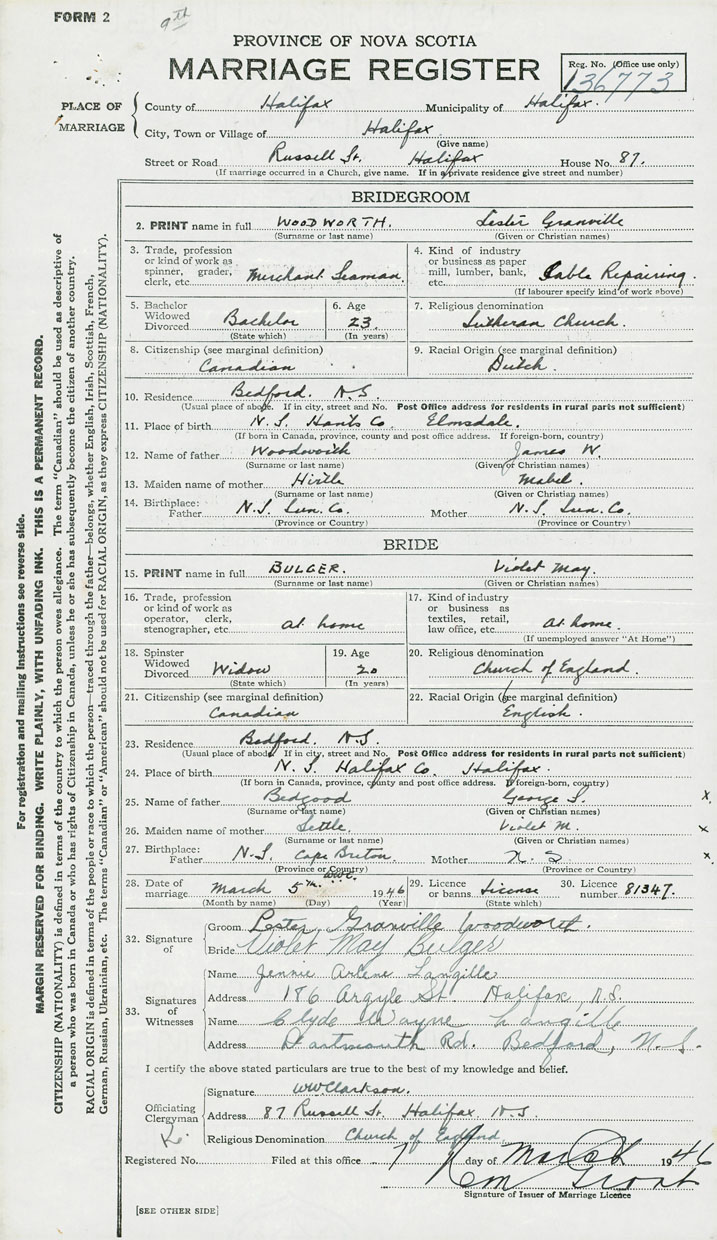 FORM 2
9th
PROVINCE OF NOVA SCOTIA
MARRIAGE REGISTER
Reg. No. (Office use only)
136773
PLACE OF MARRIAGE
County of Halifax Municipality of Halifax.
City, Town or Village of Halifax
(Give name)
Street or Road Russell St. Halifax House No. 87.
(If marriage occurred in a Church, give name. If in a private residence give street and number)
BRIDEGROOM
2. PRINT name in full WOODWORTH. Lester Granville
(Surname or last name) (Given or Christian names)
3. Trade, profession or kind of work as spinner, grader, clerk, etc. Merchant Seaman
4. Kind of industry or business as paper mill, lumber, bank, etc. Cable Repairing.
(If labourer specify kind of work above)
5. Bachelor Widowed Divorced Bachelor
(State which)
6. Age 23.
(In years)
7. Religious denomination
Lutheran Church.
8. Citizenship (see marginal definition)
Canadian
9. Racial Origin (see marginal definition)
Dutch.
10. Residence Bedford. N.S.
(Usual place of abode. If in city, street and No. Post Office address for residents in rural parts not sufficient)
11. Place of birth N.S. Hants Co. Elmsdale.
(If born in Canada, province, county and post office address. If foreign-born, country)
12. Name of father Woodworth James W.
(Surname or last name) (Given or Christian names)
13. Maiden name of mother Hirtle Mabel.
(Surname or last name) (Given or Christian names)
14. Birthplace: Father N.S. Lun. Co. Mother N.S. Lun. Co.
(Province or Country) (Province or Country)
BRIDE
15. PRINT name in full BULGER. Violet May.
(Surname or last name) (Given or Christian names)
16. Trade, profession or kind of work as operator, clerk, stenographer, etc. at home
17. Kind of industry or business as textiles, retail, law office, etc. at home.
(If unemployed answer "At Home")
18. Spinster Widowed Divorced Widow
(State which)
19. Age 20
(In years)
20. Religious denomination
Church of England.
21. Citizenship (see marginal definition)
Canadian
22. Racial Origin (see marginal definition)
English.
23. Residence Bedford, N.S
(Usual place of abode. If in city, street and No. Post Office address for residents in rural parts not sufficient)
24. Place of birth N.S. Halifax Co. Halifax.
(If born in Canada, province, county and post office address. If foreign-born, country)
25. Name of father Bedgood George S. x.
(Surname or last name) (Given or Christian names)
26. Maiden name of mother Settle. Violet M. x
(Surname or last name) (Given or Christian names)
27. Birthplace: Father N.S. Cape Breton. Mother N. S x.
(Province or Country) (Province or Country)
WWC.
28. Date of marriage March 5th 1946
(Month by name) (Day) (Year)
29. Licence or banns License
(State which)
30. Licence number 81347.
32. Signature of
Groom Lester Granville Woodworth.
Bride Violet May Bulger
33. Signatures of Witnesses
Name Jennie Arlene Langille
Address 186 Argyle St. Halifax, N.S.
Name Clyde Wayne Langille
Address Dartmouth Rd. Bedford, N.S.
I certify the above stated particulars are true to the best of my knowledge and belief.
Officiating Clergyman
Signature WWClarkson.
Address 87 Russell St. Halifax N.S.
Religious Denomination Church of England
Registered No. Filed at this office 7 day of March 1946
Signature of Issuer of Marriage Licence
[SEE OTHER SIDE]
For registration and mailing instructions see reverse side.
MARGIN RESERVED FOR BINDING. WRITE PLAINLY, WITH UNFADING INK. THIS IS A PERMANENT RECORD.
CITIZENSHIP (NATIONALITY) is defined in terms of the country to which the person owes allegiance. The term "Canadian" should be used as descriptive of
a person who was born in Canada or who has rights of Citizenship in Canada, unless he or she has subsequently become the citizen of another country.
RACIAL ORIGIN is defined in terms of the people or race to which the person—traced through the father—belongs, whether English, Irish, Scottish, French,
German, Russian, Ukrainian, etc. The terms "Canadian" or "American" should not be used for RACIAL ORIGIN, as they express CITIZENSHIP (NATIONALITY).